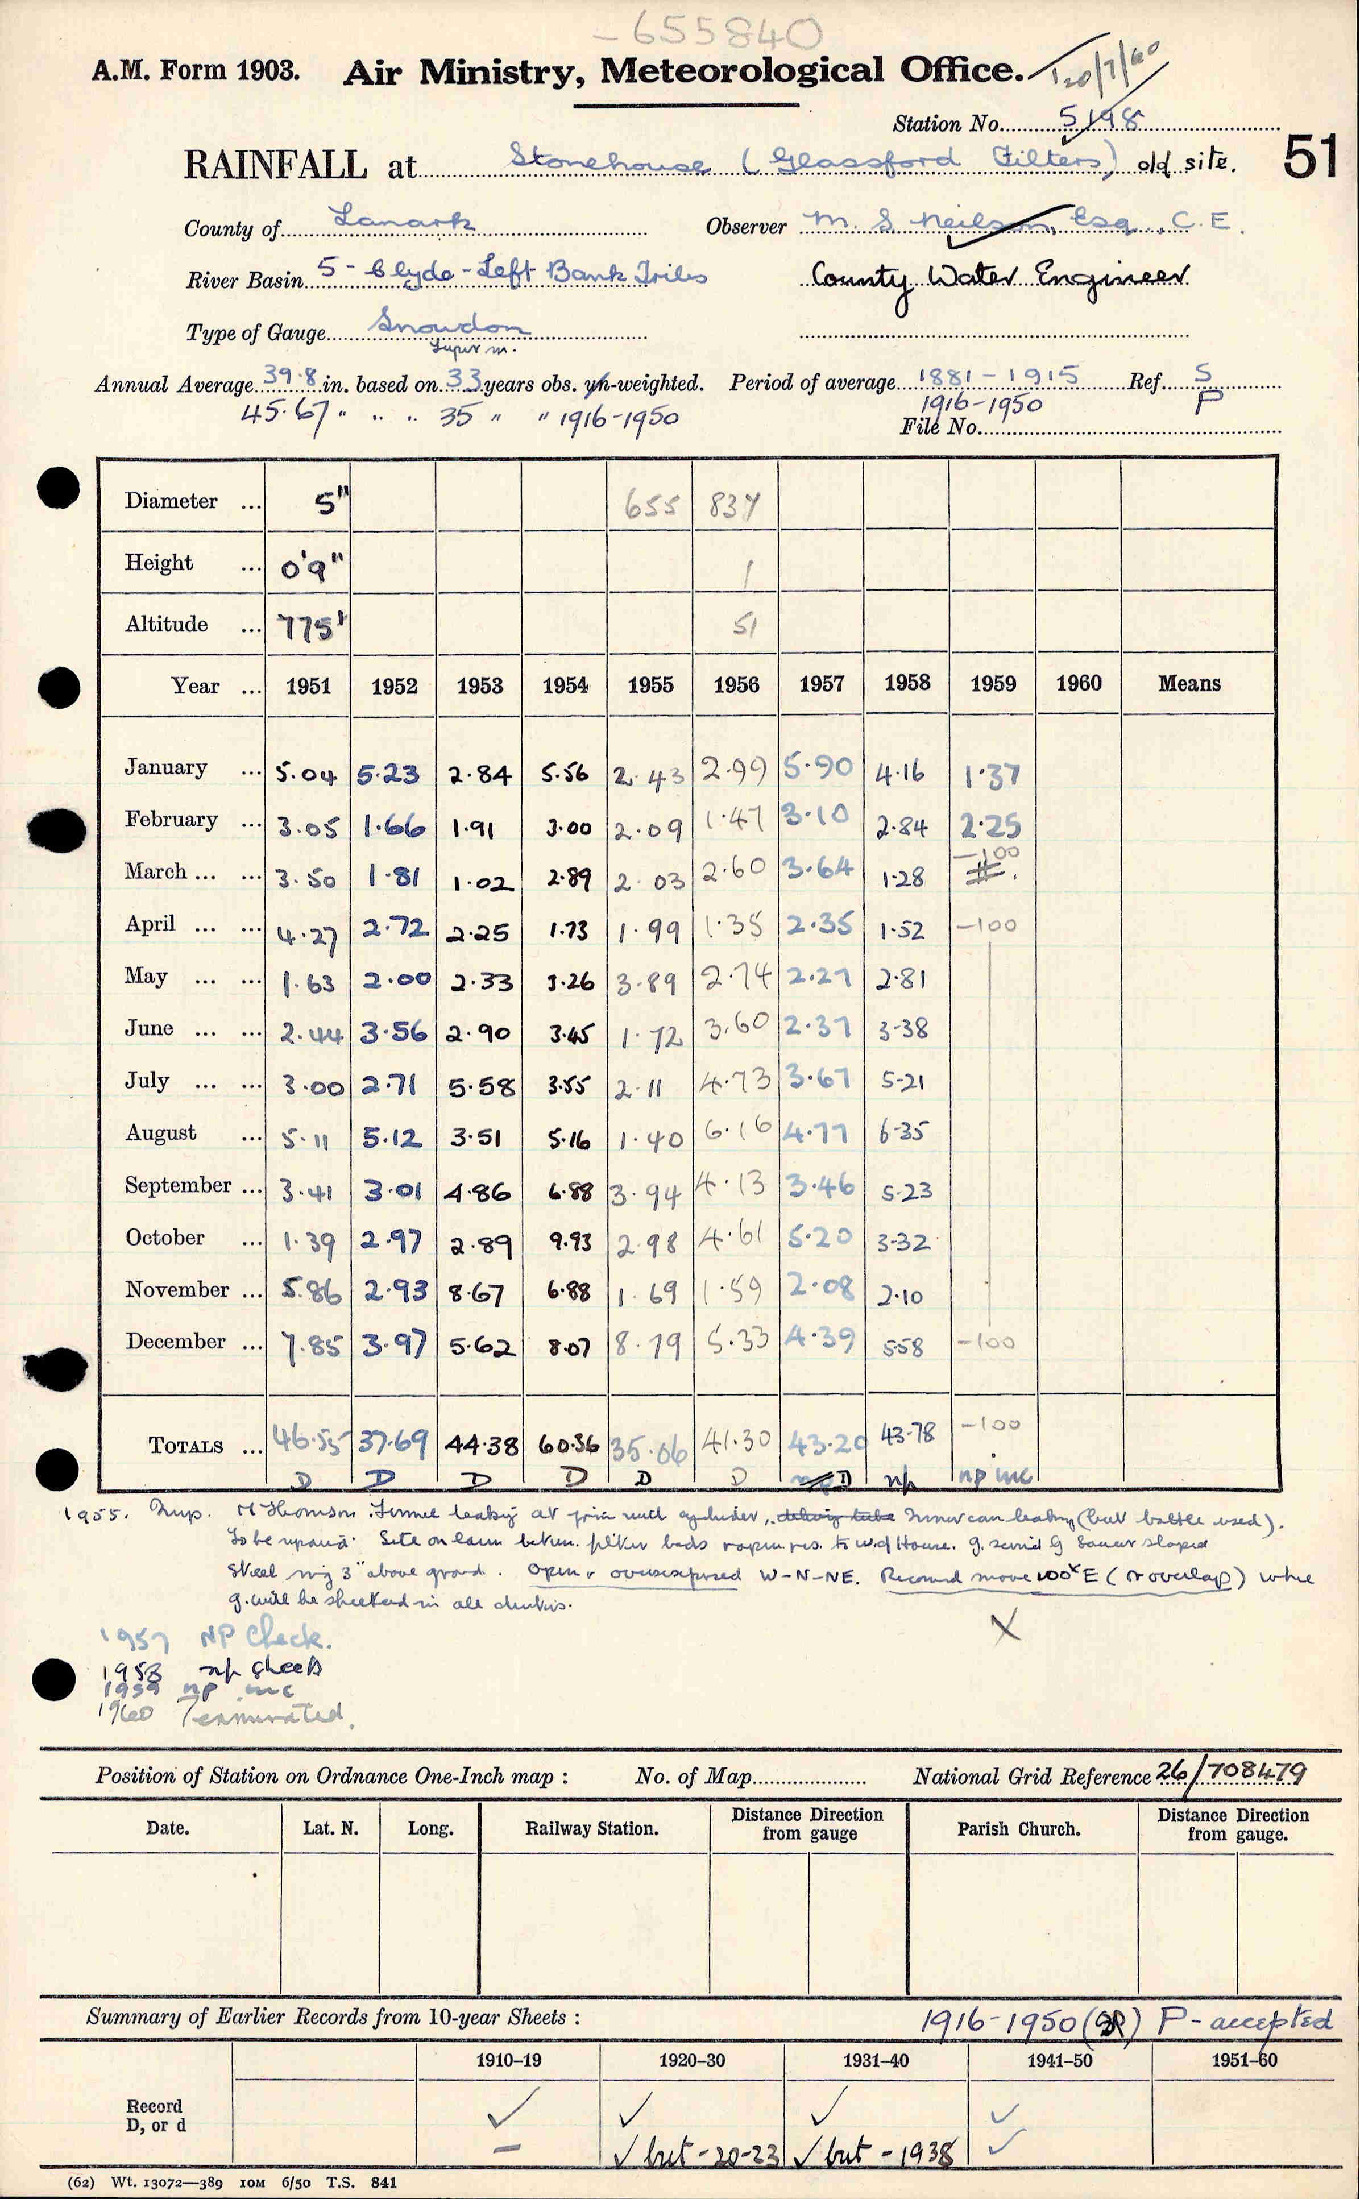 - 655840
A.M. Form 1903. Air Ministry, Meteorological Office. 20/7/60
Station No. 5198
RAINFALL at Stonehouse (Glassford Filters) old site. 51
County of Lanark Observer M. S Neilson, Esq., C.E.
River Basin 5 - Clyde - Left Bank Tribs County Water Engineer
Type of Gauge Snowdon
Annual Average 39.8 in. based on 33 years obs. -weighted. Period of average 1881-1915 Ref. S
45.67 " " " 35 " " 1916-1950 1916-1950 P
File No.
Diameter ... 5" 655 834
Height ... 0'9" 1
Altitude ... 775' 51
Year ... 1951 1952 1953 1954 1955 1956 1957 1958 1959 1960 Means
January ... 5.04 5.23 2.84 5.56 2.43 2.99 5.90 4.16 1.37
February ... 3.05 1.66 1.91 3.00 2.09 1.47 3.10 2.84 2.25
March ... ... 3.50 1.81 1.02 2.89 2.03 2.60 3.64 1.28 -100
April ... ... 4.27 2.72 2.25 1.73 1.99 1.35 2.35 1.52 -100
May ... ... 1.63 2.00 2.33 3.26 3.89 2.74 2.27 2.81
June ... ... 2.44 3.56 2.90 3.45 1.72 3.60 2.37 3.38
July ... ... 3.00 2.71 5.58 3.55 2.11 4.73 3.67 5.21
August ... 5.11 5.12 3.51 5.16 1.40 6.16 4.77 6.35
September ... 3.41 3.01 4.86 6.88 3.94 4.13 3.46 5.23
October ... 1.39 2.97 2.89 9.93 2.98 4.61 5.20 3.32
November ... 5.86 2.93 8.67 6.88 1.69 1.59 2.08 2.10
December ... 7.85 3.97 5.62 8.07 8.79 5.33 4.39 5.58 -100
TOTALS ... 46.55 37.69 44.38 60.36 35.06 41.30 43.20 43.78 -100
D D D D D D D np np inc
1955. Insp. M Thomson. Funnel leaking at join with cylinder, Inner can leaking (but bottle used).
To be repaired. Site on lawn betwn. filter beds House.
3" above ground. Open & overexposed W-N-NE. Recomd move 100x E (& overlap) where
g. will be sheltered in all
1957 NP Check. X
1958 np sheets
1959 np inc
1960 Terminated.
Position of Station on Ordnance One-Inch map : No. of Map National Grid Reference 26/708479
Date. Lat. N. Long. Railway Station. Distance Direction from gauge Parish Church. Distance Direction from gauge.
Summary of Earlier Records from 10-year Sheets : 1916-1950 (SR) P - accepted
1910–19 1920–30 1931–40 1941–50 1951–60
Record ✓ ✓ ✓ ✓
D, or d - ✓ but -20-23 ✓ but - 1938 ✓
(62) Wt. 13072—389 10M 6/50 T.S. 841